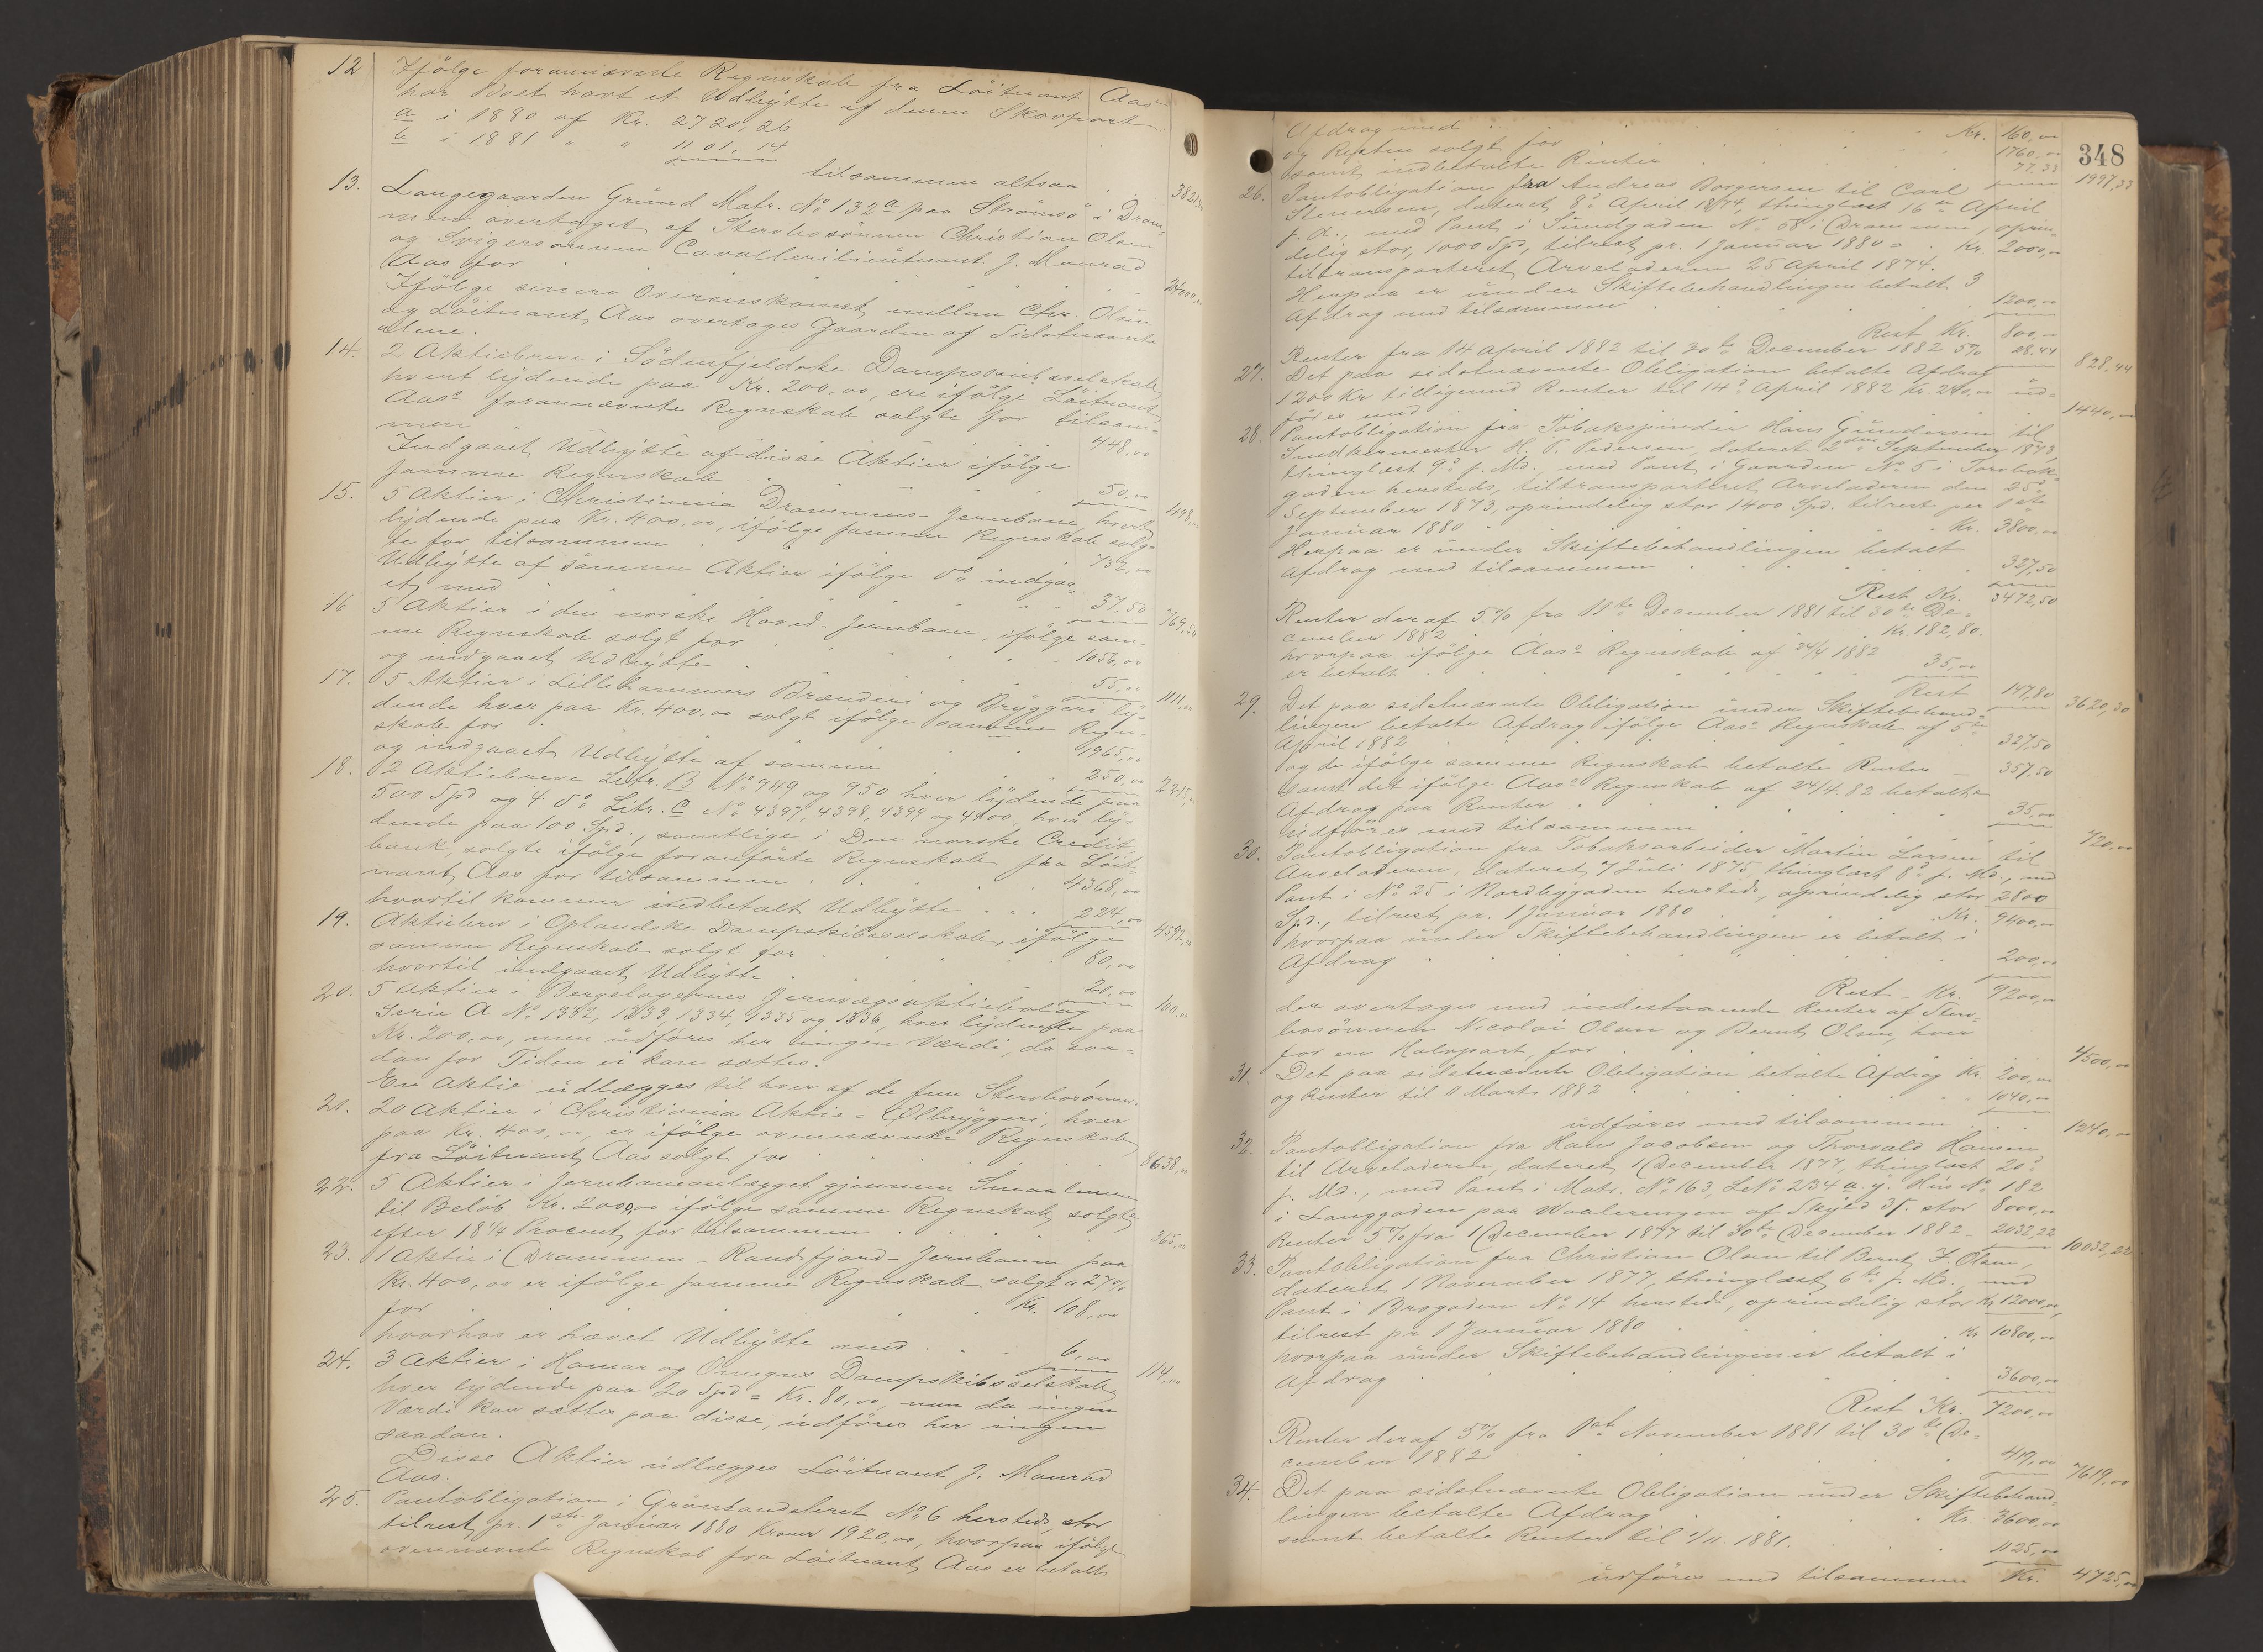 12 Ifölge forannævnte Regnskab fra Löitnant Aas
har Boet havt et Udbÿtte af denne Skovpart
a i 1880 af Kr. 2720,26
b i 1881 " " 1101,14
tilsammen altsaa . 3821,
13. Langegaarden Gründ Matr. No 132a paa Strömsö i Dram-
men overtaget af Stervbosönnen Christian Olsen
og Svigersönnen Cavallerilieutenant J. Monrad
Aas for . . . . . 24000,00
Ifölge senere Overenskomst mellem Chr. Olsen
og Löitnant Aas overtages Gaarden af Sidstnævnte
alene.
14. 2 Aktiebreve i Södenfjeldske Dampskibsselskab,
hvert lÿdende paa Kr. 200,00, ere ifölge Löitnant
Aas's forannævnte Regnskab solgte for tilsam-
men 448,00
Indgaaet Udbÿtte af disse Aktier ifölge
samme Regnskab . . . 50,00 498,00
15. 5 Aktier i Christiania Drammens-Jernbane, hvert
lÿdende paa Kr. 400,00, ifölge samme Regnskab solg-
te for tilsammen . . . 732,00
Udbÿtte af samme Aktier ifölge Do indgaa-
et med . . . 37,50 769,50
16 5 Aktier i den norske Hoved-Jernbane, ifölge sam-
me Regnskab solgt for . . . 1056,00
og indgaaet Udbÿtte . . . 55,00 1111,00
17. 5 Aktier i Lillehammers Brænderi og Brÿggeri lÿ-
dende hver paa Kr. 400,00 solgt ifölge samme Regn-
skab for . . . 1965,00
og indgaaet Udbÿtte af samme . . . 250,00 2215,
18. 2 Aktiebreve Litr. B No 949 og 950 hver lÿdende paa
500 Spd og 4 Do Litr. C No 4397, 4398, 4399 og 4400, hver lÿ-
dende paa 100 Spd., samtlige i Den norske Credit-
bank, solgte ifölge foranförte Regnskab fra Löit-
nant Aas for tilsammen . . . 4368,00
hvortil kommer indbetalt Udbÿtte . . . 224,00 4592,00
19. Aktiebrev i Oplandske Dampskibsselskab, ifölge
samme Regnskab solgt for . . . 80,00
hvortil indgaaet Udbÿtte . . . 20,00 100,00
20. 5 Aktier i Bergslagernes Jernvægsaktiebolag
Serie A No 1332, 1333, 1334, 1335 og 1336, hver lÿdende paa
Kr. 200,00, men udföres her ingen Værdi, da saa-
dan for Tiden ei kan sættes.
En Aktie udlægges til hver af de fem Stervbosönner.
21. 20 Aktier i Christiania Aktie-Ølbrÿggeri, hver
paa Kr. 400,00, er ifölge ovennævnte Regnskab
fra Löitnant Aas solgt for . . . 8638,00
22. 5 Aktier i Jernbaneanlægget gjennem Smaalenene
til Beløb Kr. 2000,00 ifölge samme Regnskab solgte
efter 18 1/4 Procent for tilsammen . . . 365,00
23. 1 Aktie i Drammen-Randsfjord-Jernbanen paa
Kr. 400,00 er ifölge samme Regnskab solgt a 27%
for . . . Kr. 108,00
hvorhos er hævet Udbÿtte med . . . 6,00 114,00
24. 3 Aktier i Hamar og Omegns Dampskibsselskab,
hver lÿdende paa 20 Spd = Kr. 80,00, men da ingen
Værdi kan sættes paa disse, udföres her ingen
saadan.
Disse Aktier udlægges Löitnant J. Monrad
Aas.
25. Pantobligation i Grönlandsleret No 6 hersteds, stor
tilrest pr. 1ste Januar 1880 Kroner 1920,00, hvorpaa ifölge
ovennævnte Regnskab fra Löitnant Aas er betalt
348
Afdrag med . . . Kr. 160,00
og Resten solgt for . . . 1760,00
samt indbetalte Renter . . . 77,33 1997,33
26. Pantobligation fra Andreas Borgersen til Carl
Stenersen, dateret 8de April 1874, thinglæst 16de April
s. A., med Pant i Sundgaden No 58 i Drammen, oprin-
delig stor, 1000 Spd, tilrest pr. 1 Januar 1880 = . Kr. 2000,00
tiltransporteret Arveladeren 25 April 1874.
Herpaa er ünder Skiftebehandlingen betalt 3
Afdrag med tilsammen . . . 1200,00
Rest Kr. 800,00
Renter fra 14 April 1882 til 30te December 1882 5% 28,44 828,44
27. Det paa sidstnævnte Obligation betalte Afdrag
1200 Kr tilligemed Renter til 14de April 1882 Kr. 240,00 üd-
föres med . . . 1440,00
28. Pantobligation fra Tobakspinder Hans Gundersen til
Snedkermester H. P. Pedersen, dateret 2den September 1873
thinglæst 9de s. Md., med Pant i Gaarden No 5 i Torvbak-
gaden hersteds, tiltransporteret Arveladeren den 25de
September 1873, oprindelig stor 1400 Spd. tilrest per 1ste
Januar 1880 . . . Kr. 3800,00
Herpaa er ünder Skiftebehandlingen betalt
Afdrag med tilsammen . . . 327,50
Rest Kr. 3472,50
Renter deraf 5% fra 11te December 1881 til 30te De-
cember 1882 . . . Kr. 182,80.
hvorpaa ifölge Aas's Regnskab af 24/4 1882
er betalt . . . 35,00
Rest 147,80 3620,30
29. Det paa sidstnævnte Obligation ünder Skiftebehand-
lingen betalte Afdrag ifölge Aas's Regnskab af 5te
April 1882 . . . 327,50
og de ifölge samme Regnskab betalte Renter — 357,50
samt det ifölge Aas's Regnskab af 24/4 82 betalte
Afdrag paa Renter . . . 35,00
üdföres med tilsammen . . . 720,00
30. Pantobligation fra Tobaksarbeider Martin Larsen til
Arveladeren, dateret 7 Juli 1875, thinglæst 8de s. Md., med
Pant i No 25 i Nordbÿgaden hersteds, oprindelig stor 2800
Spd., tilrest pr. 1 Januar 1880 . . . Kr. 9400,00
hvorpaa ünder Skiftebehandlingen er betalt i
Afdrag . . . 200,00
Rest - Kr. 9200,00
der overtages med indestaaende Renter af Sterv-
bosönnen Nicolai Olsen og Bernt Olsen, hver
for en Halvpart, for . . . 4500,00
31. Det paa sidstnævnte Obligation betalte Afdrag Kr. 200,00
og Renter til 11 Marts 1882 . . . 1040,00
üdföres med tilsammen . . . 1240,00
32. Pantobligation fra Hans Jacobsen og Thorvald Hansen
til Arveladeren, dateret 1 December 1877, thinglæst 20de
s. Md., med Pant i Matr. No 163, LNo 234 a. ÿ. Hus No 182
i Langgaden paa Waalerengen af Skÿld 3 . stor 8000,00
Renter 5% fra 1 December 1877 til 30te December 1882 - 2032,22 10032,22
33. Pantobligation fra Christian Olsen til Bernt F. Olsen,
dateret 1 November 1877, thinglæst 6te s. Md., med
Pant i Brogaden No 14 hersteds, oprindelig stor Kr 12000,00,
tilrest pr 1 Januar 1880 . . . Kr 10800,00
hvorpaa ünder Skiftebehandlingen er betalt i
Afdrag . . . 3600,00
Rest Kr. 7200,00
Renter deraf 5% fra 1ste November 1881 til 30te De-
cember 1882 . . . 419,00 7619,00
34. Det paa sidstnævnte Obligation ünder Skiftebehand-
lingen betalte Afdrag . . . Kr. 3600,00
samt betalte Renter til 1/11. 1881. . . . 1125,00
üdföres med tilsammen Kr. 4725,00